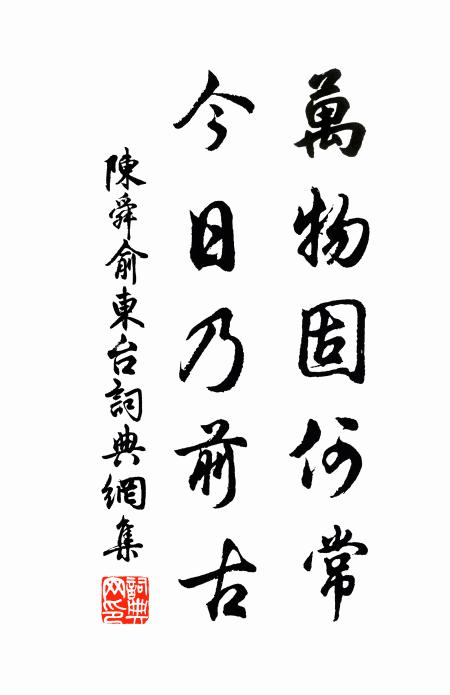 萬物固何常
今日乃前古
陳舜俞東台詞典網集
詞典網印